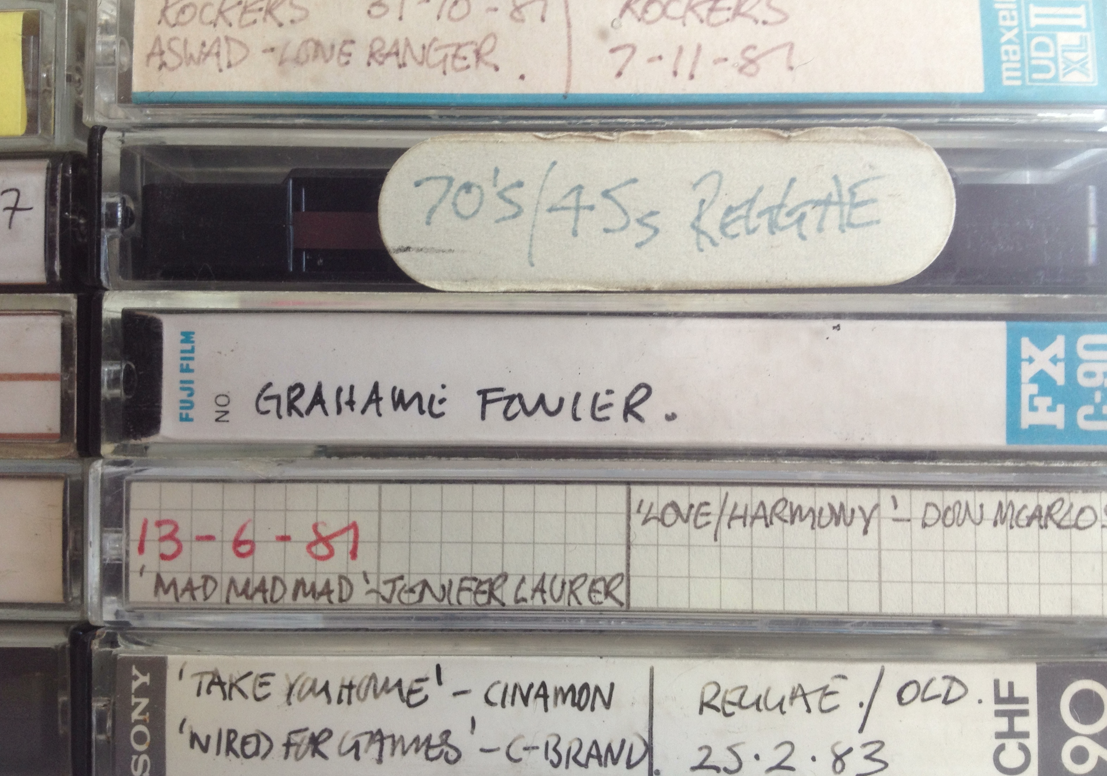 ROCKERS 31-10-81
ASWAD - LONE RANGER.
ROCKERS
7-11-81
maxell
UD
XL II
70'S/45s REGGAE
7
FUJI FILM
NO.
GRAHAME FOWLER.
FX
C-90
13-6-81
'MAD MAD MAD' - JENIFER LAURER
'LOVE/HARMONY' - DON MCARLOS
SONY
'TAKE YOU HOME' - CINAMON
'WIRED FOR GAMES' - C-BRAND.
REGGAE./OLD.
25.2.83
CHF
90